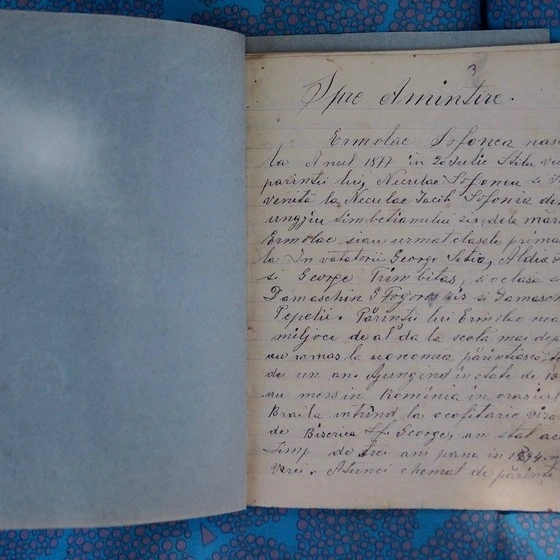 3
Spre Amintire.
Ermolae Sofonea nas
la Anul 1877 in 20 Iulie Stilu ve
parintii lui, Neculae Sofonea si
venita la Neculae Iacob Sofonia de
ungiu Simbetianului zis dela mar
Ermolae siau urmat clasele prima
la Invatatorii George Sitia, Aldia
si George Trimbitas, si oclasa
Damaschin G Fogoros zis si Damasch
Pepelii. Parintii lui Ermolae nea
miljoce de al da la scola mai dep
au ramas la economia parinteasca
de un an. Ajungind in etate de
au mers in Rominia in orasiul
Braila intrind la ocofitarie viza
de Biserica Sf. George, am stat ac
Timp de trei ani pana in 1894
Vara. Atunci chemat de parinti